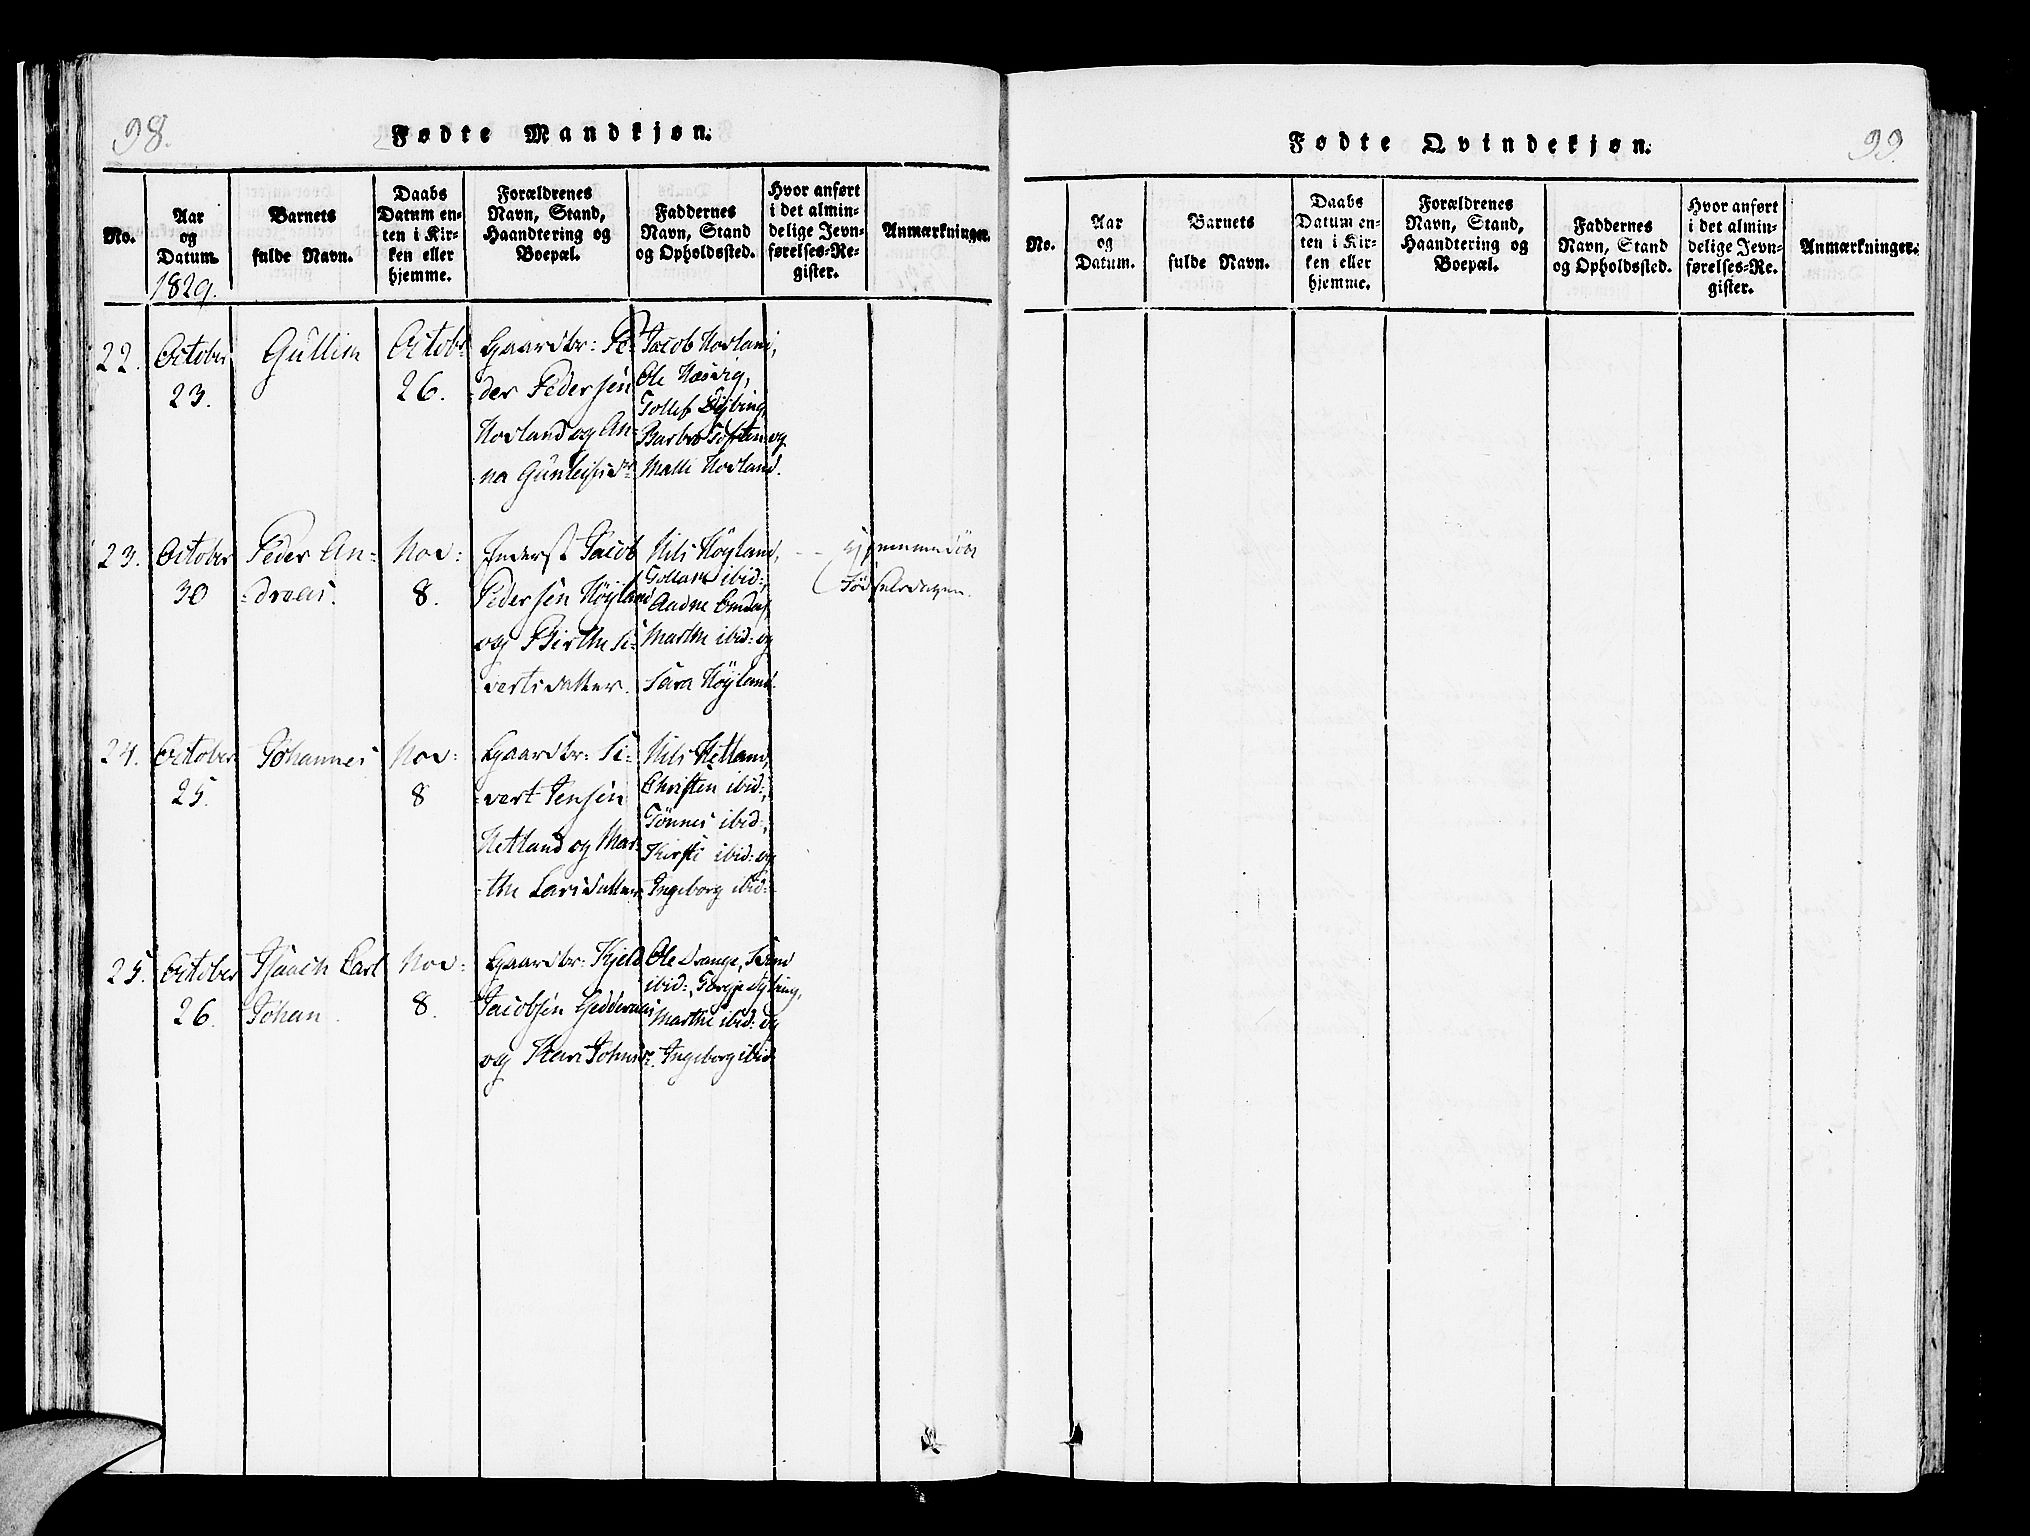 98.
Fødte Mandkjøn.
No.
Aar og Datum.
1829.
Barnets fulde Navn.
Daabs Datum enten i Kirken eller hjemme.
Forældrenes Navn, Stand, Haandtering og Boepæl.
Faddernes Navn, Stand og Opholdssted.
Hvor anført i det almindelige Jevnførelses-Register.
Anmærkninger.
22.
October
23.
Gullim
Octobr
26.
Gaardbr: Pe=
=der Pedersen
Hovland og An=
=na
Jacob Hovland,
Ole
Tollef Dybing,
Barbro Toften og
Malli Hovland.
23.
October
30
Peder An=
=dreas.
Nov:
8.
Inderst Jacob
Pedersen Høyland
og Birthe Si=
=vertsdatter.
Nils Høyland,
ibid:,
Aadne
Marthe ibid: og
Sara Høyland.
Fødselsdagen.
24.
October
25.
Johannes
Nov:
8
Gaardbr: Si=
=vert Jensen
Hetland og Mar=
=the Larsdatter
Nils Hetland,
Christen ibid:,
Tønnes ibid:,
Kirsti ibid: og
Ingeborg ibid:
25.
October
26.
Isaach Carl
Johan.
Nov:
8.
Gaardbr: Kjeld
Jacobsen
og Kari Johnsd:
Ole Drange,
ibid:, Dybing,
Marthe ibid: og
Ingeborg ibid
Fødte Qvindekjøn.
99.
No.
Aar og Datum.
Barnets fulde Navn.
Daabs Datum enten i Kirken eller hjemme.
Forældrenes Navn, Stand, Haandtering og Boepæl.
Faddernes Navn, Stand og Opholdssted.
Hvor anført i det almindelige Jevnførelses-Register.
Anmærkninger.